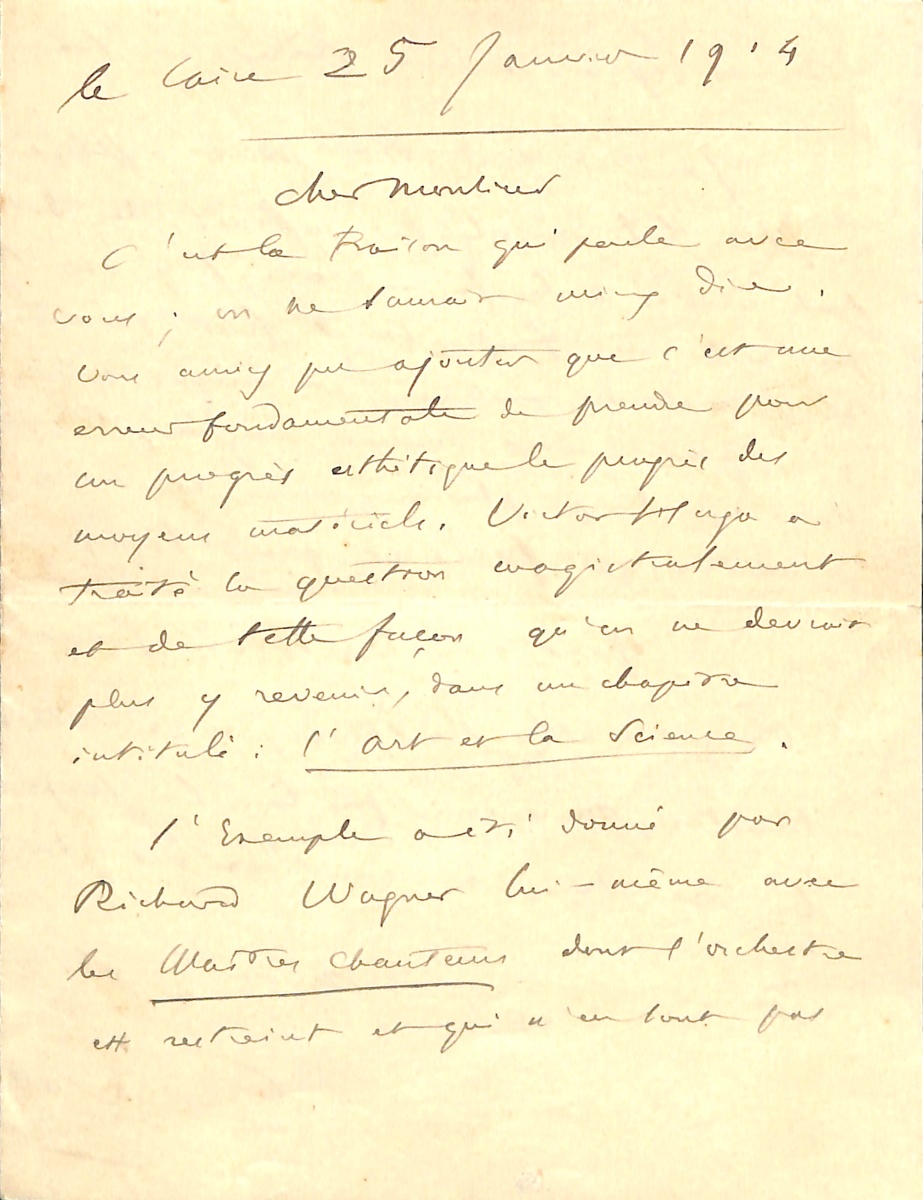 le Caire 25 Janvier 1914
cher Monsieur
C'est la Raison qui parle avec
vous ; on ne saurait mieux dire.
Vous auriez pu ajouter que c'est une
erreur fondamentale de prendre pour
un progrès esthétique le progrès des
moyens matériels. Victor Hugo a
traité la question magistralement
et de telle façon qu'on ne devrait
plus y revenir, dans un chapitre
intitulé : l'Art et la Science.
l'Exemple a été donné par
Richard Wagner lui-même avec
les Maîtres Chanteurs dont l'orchestre
est restreint et qui n'en sont pas